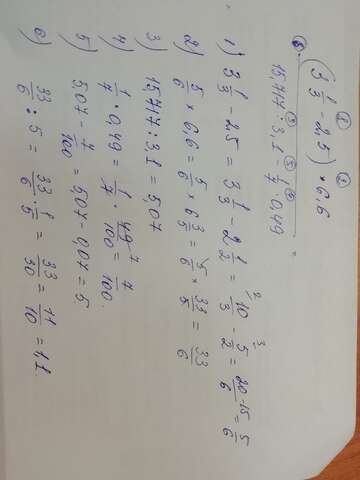 (3 1/3 - 2,5) * 6,6
15,717 : 3,1 - 1/7 · 0,49
1) 3 1/3 - 2,5 = 3 1/3 - 2 1/2 = 10/3 - 5/2 = (20-15)/6 = 5/6
2) 5/6 * 6,6 = 5/6 * 6 3/5 = 5/6 * 33/5 = 33/6
3) 15,717 : 3,1 = 5,07
4) 1/7 · 0,49 = 1/7 · 49/100 = 7/100.
5) 5,07 - 7/100 = 5,07 - 0,07 = 5.
6) 33/6 : 5 = 33/6 · 1/5 = 33/30 = 11/10 = 1,1.